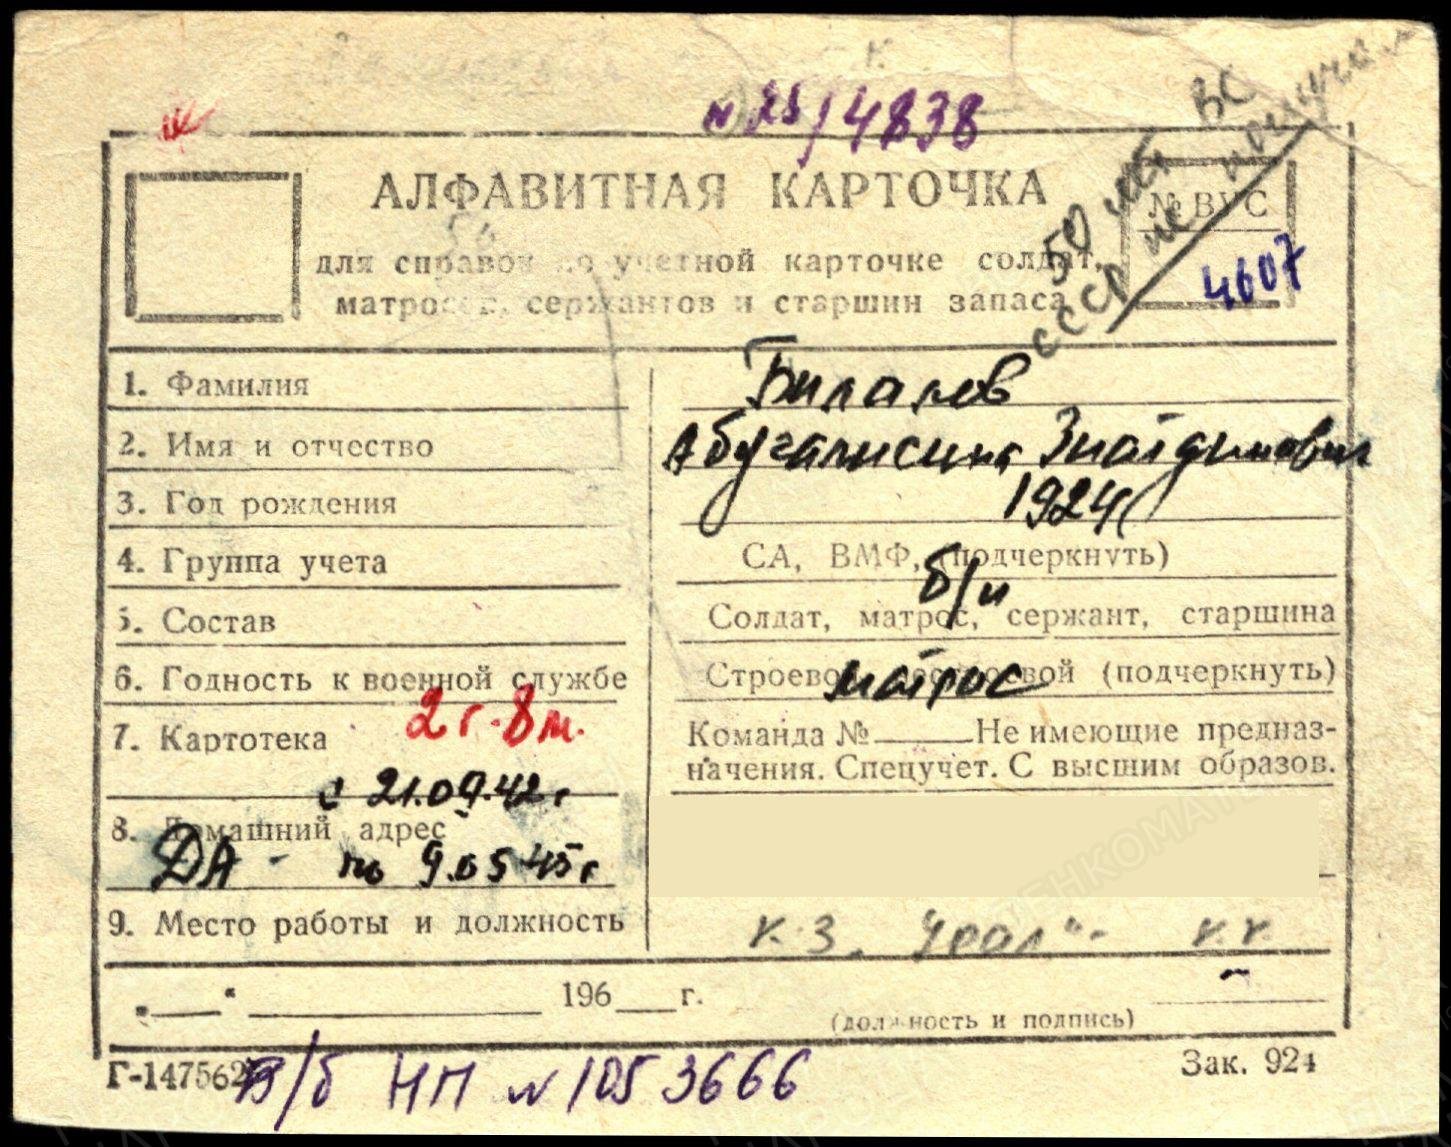 № 25/4838
50 лет ВС
СССР не получал
АЛФАВИТНАЯ КАРТОЧКА
№ ВУС
для справок по учетной карточке солдат,
4607
матросов, сержантов и старшин запаса
1. Фамилия Билалов
2. Имя и отчество
3. Год рождения 1924
4. Группа учета СА, ВМФ, (подчеркнуть)
б/п
5. Состав Солдат, матрос, сержант, старшина
6. Годность к военной службе Строевой, нестроевой (подчеркнуть)
матрос
2 г. 8 м.
7. Картотека Команда № Не имеющие предназ-
начения. Спецучет. С высшим образов.
с 21.09.42 г
8. Домашний адрес
ДА - по 9.05 45 г
9. Место работы и должность к-з. "Урал" -
„ “ 196 г.
(должность и подпись)
Г-147562 Зак. 924
В/б НП № 1053666